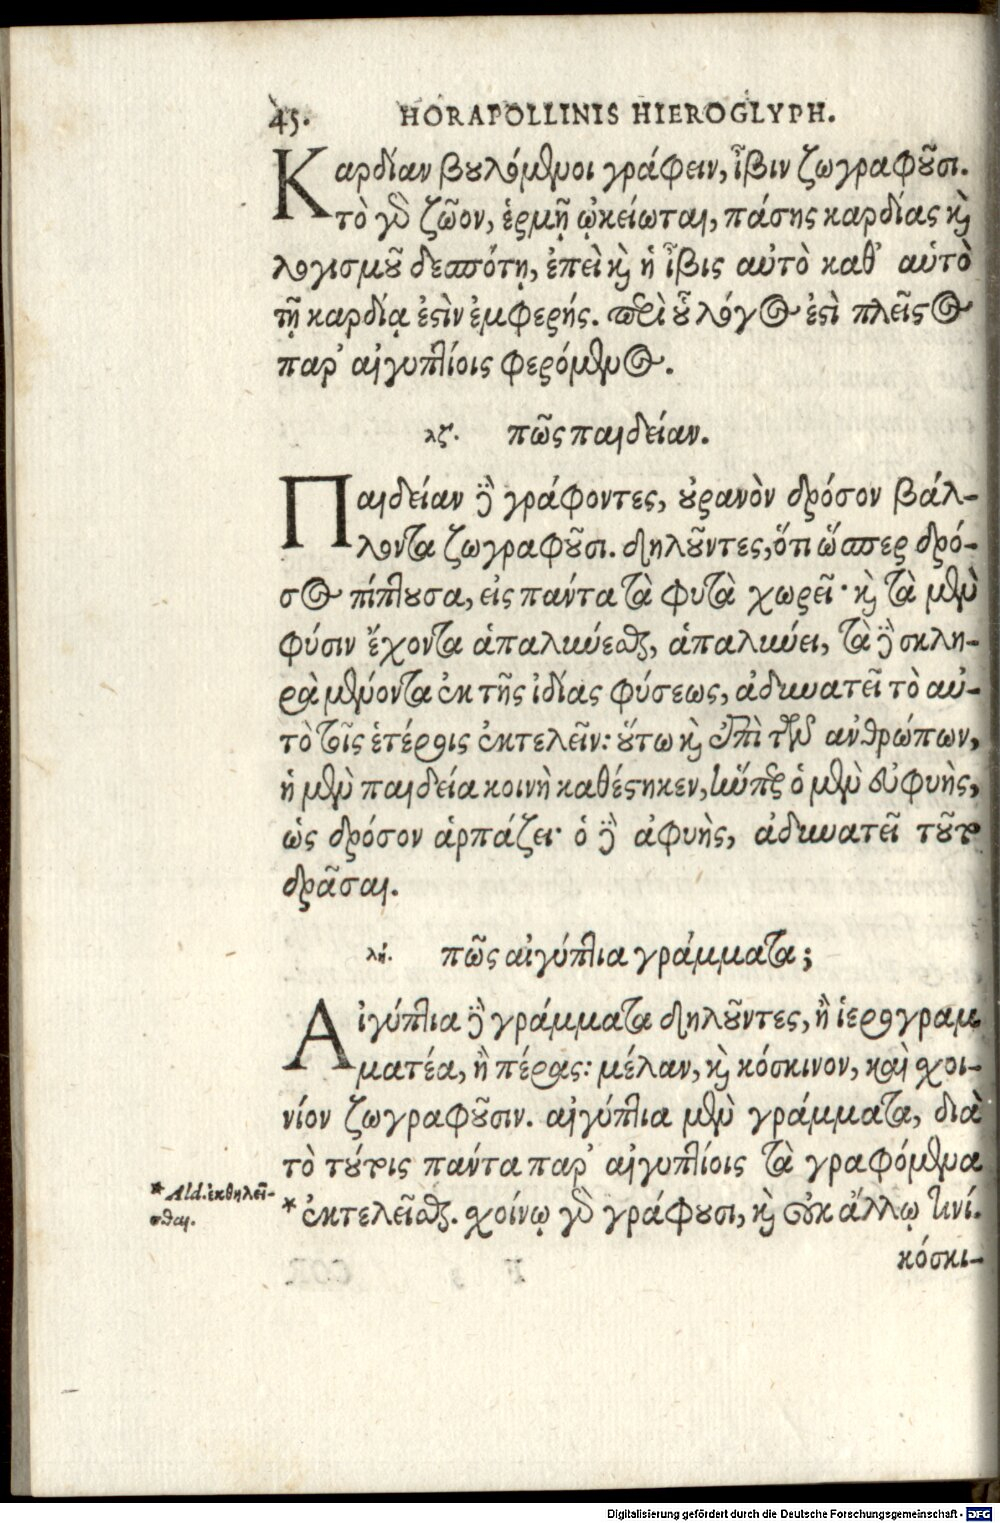 45. HORAPOLLINIS HIEROGLYPH.
Καρδίαν βȣλόμενοι γράφειν, ἶβιν ζωγραφȣ͂σι.
τὸ γὰρ ζῶον, ἑρμῇ ᾠκείωται, πάσης καρδίας κὶ
λογισμȣ͂ δεσπότῃ, ἐπεὶ κὶ ἡ ἶβις αὐτὸ καθ' αὑτὸ
τῇ καρδίᾳ ἐστὶν ἐμφερής. περὶ ȣ̔͂ λόγος ἐστὶ πλεῖστος
παρ' αἰγυπτίοις φερόμενος.
λζ. πῶς παιδείαν.
Παιδείαν δὲ γράφοντες, ȣ̓ρανὸν δρόσον βάλ-
λοντα ζωγραφȣ͂σι. δηλȣ͂ντες, ὅτι ὥσπερ δρό-
σος πίπτȣσα, εἰς πάντα τὰ φυτὰ χωρεῖ· κὶ τὰ μὲν
φύσιν ἔχοντα ἁπαλύνεσθαι, ἁπαλύνει, τὰ δὲ σκλη-
ρὰ μένοντα ἐκ τῆς ἰδίας φύσεως, ἀδυνατεῖ τὸ αὐ-
τὸ τοῖς ἑτέροις ἐκτελεῖν: ȣ̔́τω κὶ ἐπὶ τῶν ανθρώπων,
ἡ μὲν παιδεία κοινὴ καθέστηκεν, ἥνπερ ὁ μὲν εὐφυὴς,
ὡς δρόσον ἁρπάζει· ὁ δὲ ἀφυὴς, ἀδυνατεῖ τȣ͂το
δρᾶσαι.
λή. πῶς αἰγύπτια γράμματα;
Αἰγύπτια δὲ γράμματα δηλȣ͂ντες, ἢ ἱερογραμ
ματέα, ἢ πέρας: μέλαν, κὶ κόσκινον, καὶ χοι-
νίον ζωγραφȣ͂σιν. αἰγύπτια μὲν γράμματα, διὰ
τὸ τȣ́τοις πάντα παρ' αἰγυπτίοις τὰ γραφόμενα
* Ald. ἐκθηλεῖ-
σθαι.
* ἐκτελεῖσθαι. χοίνῳ γὰρ γράφȣσι, κὶ οὐκ ἄλλῳ τινί.
κόσκι-
Digitalisierung gefördert durch die Deutsche Forschungsgemeinschaft - DFG